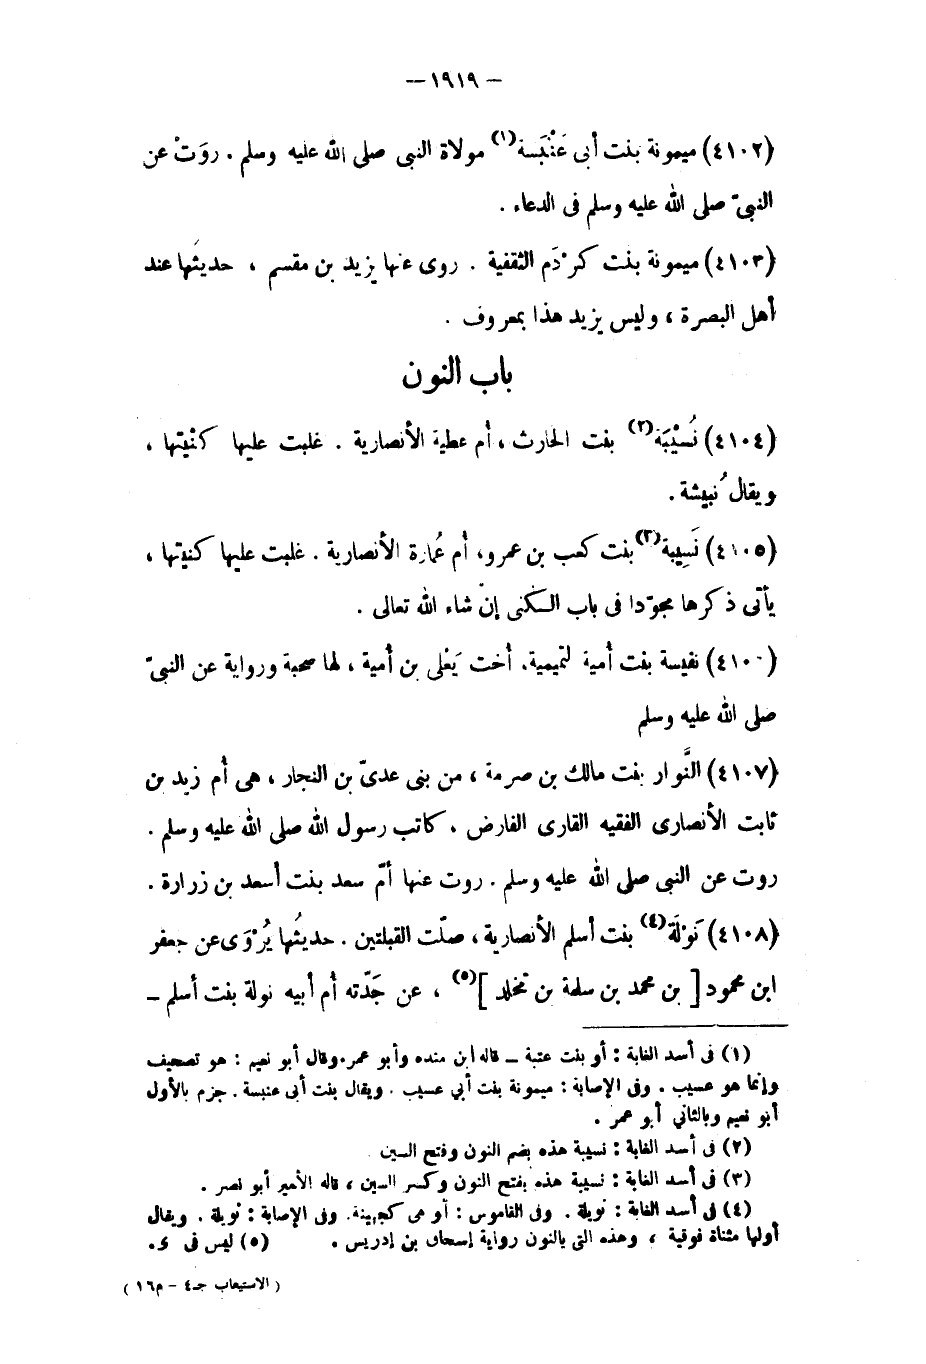 — ١٩١٩ —
(٤١٠٢) ميمونة بنت أبى عَنْبَسة(١) مولاة النبى صلى الله عليه وسلم . روَتْ عن
النبىّ صلى الله عليه وسلم فى الدعاء .
(٤١٠٣) ميمونة بنت كرْدَم الثقفية . روى عنها يزيد بن مقسم ، حديثُها عند
أهل البصرة ، وليس يزيد هذا بمعروف .
باب النون
(٤١٠٤) نُسَيْبَة(٢) بنت الحارث ، أم عطية الأنصارية . غلبت عليها كنْيتها ،
ويقال نُبيشة .
(٤١٠٥) نَسِيبة(٣) بنت كعب بن عمرو، أم عُمارة الأنصارية . غلبت عليها كنيتها ،
يأتى ذكرها مجوّدا فى باب الكنى إنْ شاء الله تعالى .
(٤١٠٠) نفيسة بنت أمية التميمية. أخت يَعْلى بن أمية ، لها صحبة ورواية عن النبىّ
صلى الله عليه وسلم
(٤١٠٧) النَّوار بنت مالك بن صرمة ، من بنى عدىّ بن النجار ، هى أم زيد بن
ثابت الأنصارى الفقيه القارى الفارض ، كاتب رسول الله صلى الله عليه وسلم .
روت عن النبى صلى الله عليه وسلم . روت عنها أمّ سعد بنت أسعد بن زرارة .
(٤١٠٨) نَوْلَة(٤) بنت أسلم الأنصارية ، صلّت القبلتين . حديثُها يُرْوَى عن جعفر
ابن محمود [ بن محمد بن سلمة بن مخلد ](٥) ، عن جَدّته أم أبيه نولة بنت أسلم —
(١) فى أسد الغابة : أو بنت عتبة — قاله ابن منده وأبو عمر. وقال أبو نعيم : هو تصحيف
وإنما هو عسيب . وفى الإصابة : ميمونة بنت أبي عسيب . ويقال بنت أبى عنبسة . جزم بالأول
أبو نعيم وبالثاني أبو عمر .
(٢) فى أسد الغابة : نسيبة هذه بضم النون وفتح السين
(٣) فى أسد الغابة : نسيبة هذه بفتح النون وكسر السين ، قاله الأمير أبو نصر .
(٤) فى أسد الغابة : نويلة . وفى القاموس : أو هى كجهينة. وفى الإصابة : نويلة . ويقال
أولها مثناة فوقية ، وهذه التى بالنون رواية إسحاق بن إدريس . (٥) ليس فى ى.
( الاستيعاب جـ٤ – م١٦ )